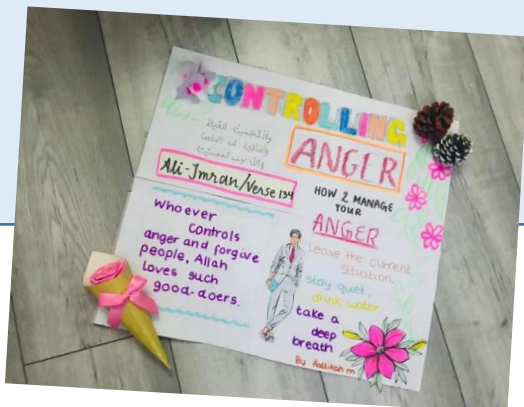 CONTROLLING
ANGER
والكظمين الغيظ
والعافين عن الناس
والله يحب المحسنين
Ali-Imran/Verse 134
Whoever
Controls
anger and forgive
people, Allah
loves such
good-doers.
HOW 2 MANAGE
YOUR
ANGER
Leave the current
Situation.
stay quiet.
drink water
take a
deep
breath
By Aatikah m